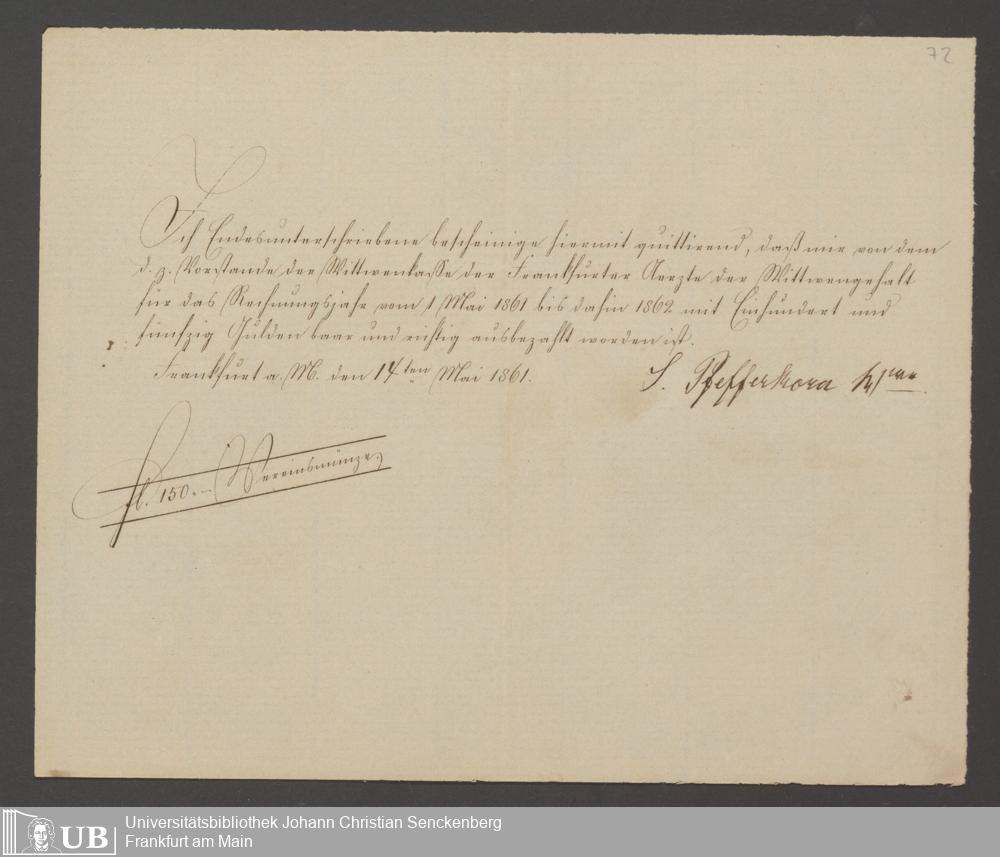 72
Ich Endesunterschriebene bescheinige hiermit quittirend, daß mir von dem
d. z. Vorstande der Wittwenkasse der Frankfurter Aerzte der Wittwengehalt
für das Rechnungsjahr vom 1 Mai 1861 bis dahin 1862 mit Einhundert und
fünfzig Gulden baar und richtig ausbezahlt worden ist.
Frankfurt a. M. den 14ten Mai 1861.
S. Pfefferkorn
fl. 150.— Vereinsmünze.
UB
Universitätsbibliothek Johann Christian Senckenberg
Frankfurt am Main